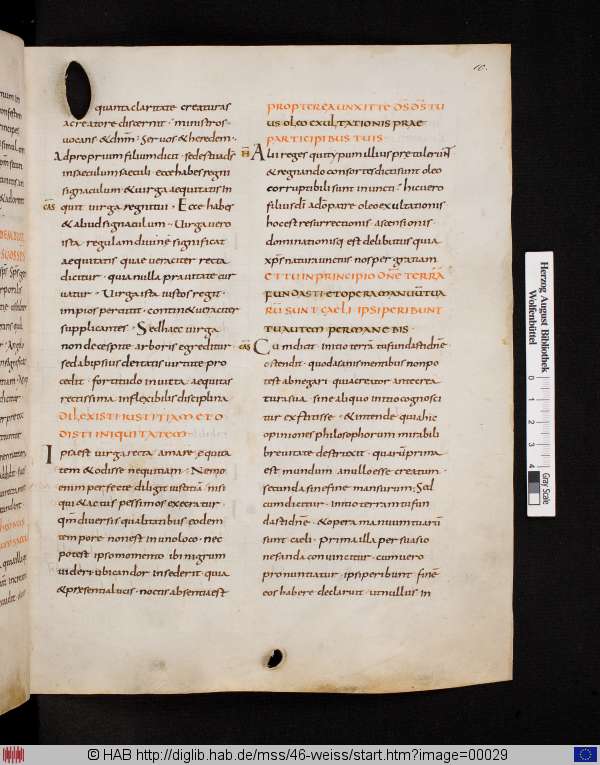 10.
quanta claritate creaturas
a creatore discernit · ministros
uocans & dnm̅ · Seruos & heredem ·
Ad proprium filium dicit · sedes tua d̅s
in saeculum saeculi · ecce habes regni
signaculum · & uirga aequitatis in
quit uirga regni tui · Ecce habes
& aliud signaculum · Uirga uero
ista regulam diuine significat
aequitatis quae ueraciter recta
dicitur · quia nulla prauitate cur
uatur · Uirga ista iustos regit ·
impios percutit · contin& ueraciter
supplicantes · Sed haec uirga
non de cespite arboris egreditur ·
sed ab ipsius deitatis uirtute pro
cedit · fortitudo inuicta aequitas
rectissima inflexibilis disciplina
DILEXISTI IUSTITIAM ET O
DISTI INIQUITATEM
Ipsa est uirga recta amare equita
tem & odisse nequitiam · Nemo
enim perfecte diligit iustitiā nisi
qui & actus pessimos execratur ·
qm̅ diuersis qualitatibus eodem
tempore non est in uno loco · nec
potest ipso momento ibi nigrum
uideri ubi candor insederit quia
& praesentia lucis · noctis absentia est
PROPTEREA UNXIT TE D̅S D̅S TU
US OLEO EXULTATIONIS PRAE
PARTICIPIBUS TUIS
Alii reges qui typum illius praetulerunt
& regnandi consortes dicti sunt oleo
corruptibili sunt inuncti · hic uero
filius d̅i ad o̅ patre oleo exultationis
hoc est resurrectionis · ascensionis ·
dominationisq; est delibutus quia
xp̅s natura unctus nos per gratiam
ET TU IN PRINCIPIO D̅NE TERRĀ
FUNDASTI ET OPERA MANUUM TUA
RŪ SUNT CAELI · IPSI PERIBUNT
TU AUTEM PERMANEBIS ·
Cū indicit · initio terrā tu fundasti dn̅e
ostendit · quod asanis mentibus non po
test abnegari quia creator ante crea
turas sua sine aliquo initio cognosci
tur extitisse · & intende quia hic
opiniones philosophorum mirabili
breuitate destruxit · quarū prima
est mundum a nullo esse creatum
secunda sine fine mansurum; Sed
cum dicitur · initio terram tu fun
dasti dn̅e · & opera manuum tuarū
sunt caeli · prima illa persuasio
nefanda conuincitur · cum uero
pronuntiatur · ipsi peribunt finē
eos habere declarauit · ut nullus in
Herzog August Bibliothek
Wolfenbüttel
0 1 2 3 4
Gray Scale
© HAB http://diglib.hab.de/mss/46-weiss/start.htm?image=00029